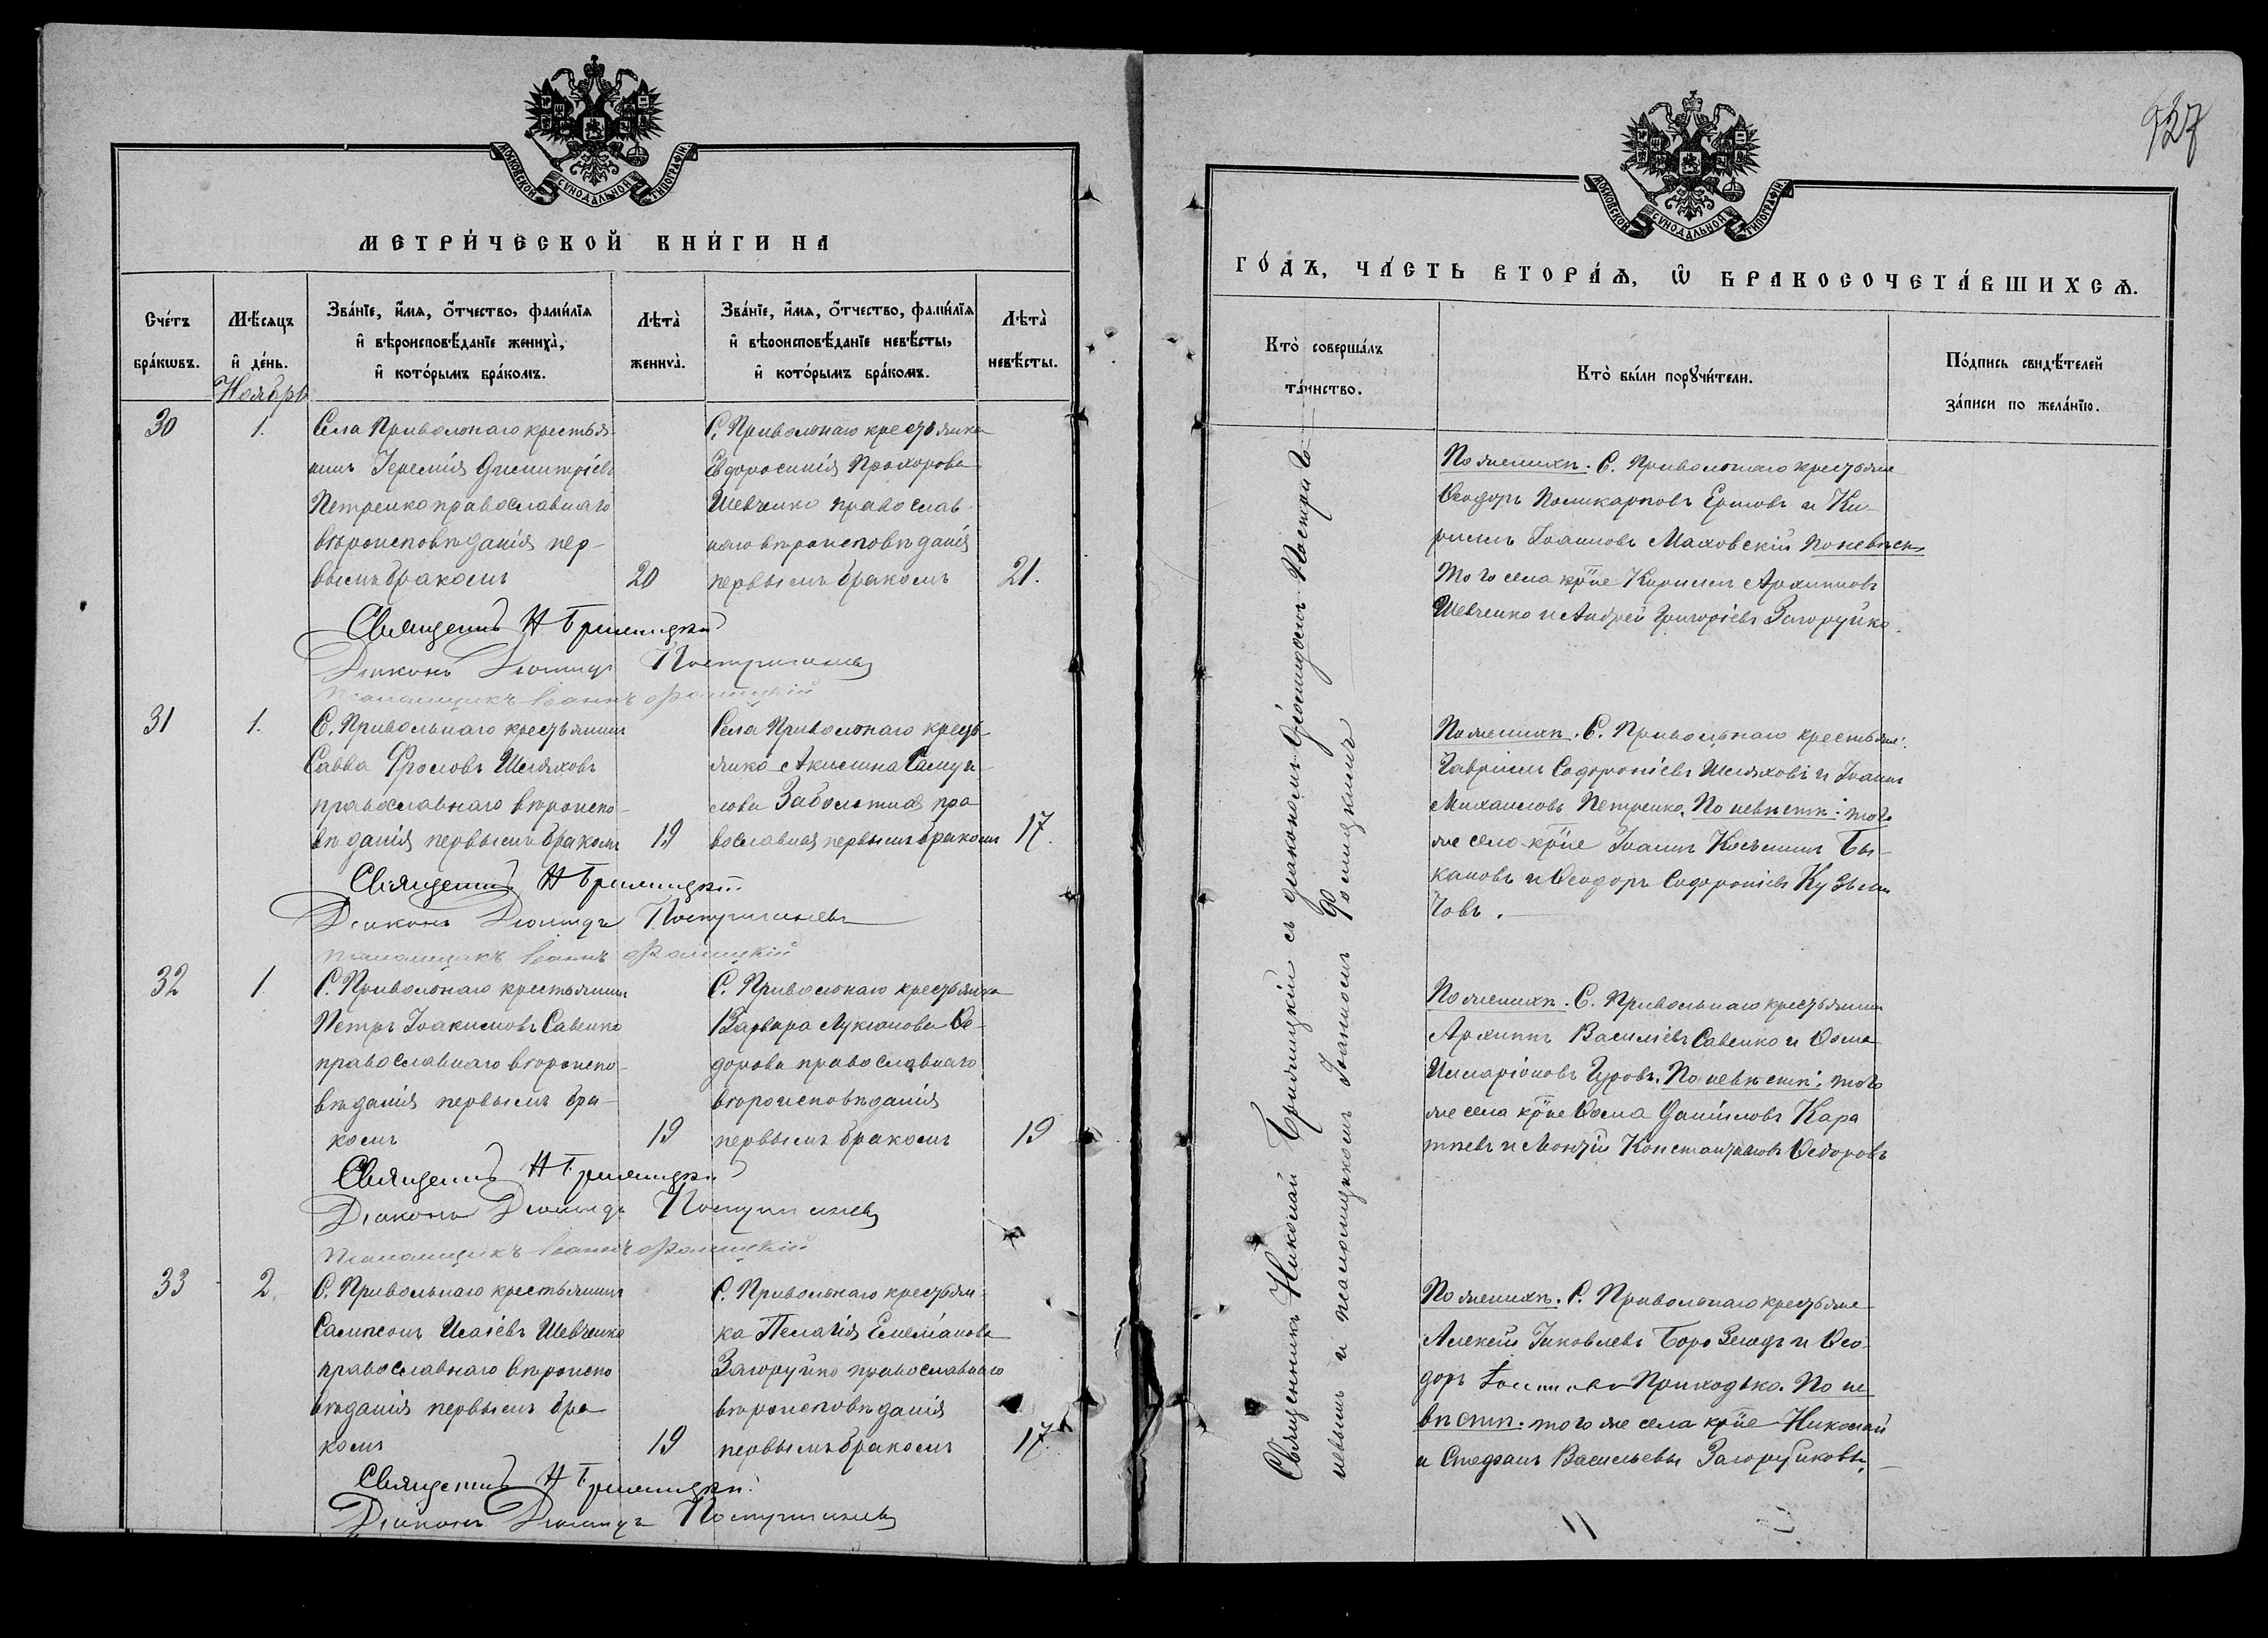 МОСКОВСКОЙ СѴНОДАЛЬНОЙ ТИПОГРАФІИ.
МЕТРИ́ЧЕСКОЙ КНИ́ГИ НА
Сче́тъ бра́кωвъ.
Мѣ́сяцъ и҆ де́нь.
Зва́нїе, и҆́мя, ѻ҆́тчество, фами́лїя и҆ вѣроисповѣ́данїе жениха̀, и҆ кото́рымъ бра́комъ.
Лѣта̀ жениха̀.
Зва́нїе, и҆́мя, ѻ҆́тчество, фами́лїя и҆ вѣроисповѣ́данїе невѣ́сты, и҆ кото́рымъ бра́комъ.
Лѣта̀ невѣ́сты.
Ноябрь
30
1.
Села Привольнаго крестья-
нинъ Іеремія Димитріевъ
Петренко православнаго
вѣроисповѣданія пер-
вымъ бракомъ
20
С. Привольнаго крестьянка
Евдоросинія Прохорова
Шевченко православ-
наго вѣроисповѣданія
первымъ бракомъ
21.
Священникъ Н
Діаконъ Діомидъ
Паламщикъ Іоаннъ Фомицкій
31
1.
С. Привольнаго крестьянинъ
Савва Фроловъ Шляховъ
православнаго вѣроиспо-
вѣданія первымъ бракомъ
19
Села Привольнаго кресть-
янка Акилина Самуи-
лова Заболотная пра
вославная первымъ бракомъ
17.
Священникъ Н
Діаконъ Діомидъ
Паламщикъ Іоаннъ Фомицкій
32
1
С. Привольнаго крестьянинъ
Петръ Іоакимовъ Савенко
православнаго вѣроиспо-
вѣданія первымъ бра-
комъ
19
С. Привольнаго крестьянка
Варвара Лукіанова Ѳе-
дорова православнаго
вѣроисповѣданія
первымъ бракомъ
19
Священникъ Н
Діаконъ Діомидъ
Паламщикъ Іоаннъ Фомицкій
33
2.
С. Привольнаго крестьянинъ
Сампсонъ Исаіевъ Шевченко
православнаго вѣроиспо
вѣданія первымъ бра
комъ
19
С. Привольнаго крестьян-
ка Пелагія Емеліанова
Загоруйко православнаго
вѣроисповѣданія
первымъ бракомъ
17.
Священникъ Н
Діаконъ Діомидъ
937
МОСКОВСКОЙ СѴНОДАЛЬНОЙ ТИПОГРАФІИ.
ГО́ДЪ, ЧА́СТЬ ВТОРА́Я, Ѽ БРАКОСОЧЕТА́ВШИХСЯ.
Кто̀ соверша́лъ та́инство.
Кто̀ бы́ли порꙋчи́тели.
По́дпись свидѣ́телей за́писи по жела́нїю.
Священникъ Николай съ діакономъ Діомидомъ
и Іоанномъ Фомицкимъ
По женихѣ. С. Привольнаго крестьяне
Ѳеодоръ Поликарповъ Ермовъ и Ки-
риллъ Іоанновъ Маховскій По невѣстѣ
того села кр̃не Кириллъ Архиповъ
Шевченко и Андрей Григоріевъ Загоруйко.
По женихѣ. С. Привольнаго крестьяне:
Гавріилъ Софроніевъ Шляховъ и Іоаннъ
Михаиловъ Петренко. По невѣстѣ: того
же села кр̃не Іоаннъ Косьминъ Бы-
кановъ и Ѳеодоръ Софроніевъ Кузьми
човъ.
По женихѣ. С. Привольнаго крестьянинъ
Архипъ Василіевъ Савенко и Ѳома
Илларіоновъ Гуровъ. По невѣстѣ: того
же села кр̃не Ѳома Даніиловъ Кара
тѣевъ и Леонтій Константиновъ Ѳедоровъ
По женихѣ. С. Привольнаго крестьяне
Алексій Іаковлевъ и Ѳео-
доръ Приходько. По не
вѣстѣ: того же села кр̃не Николай
и Стефанъ Васильевы Загоруйковы.